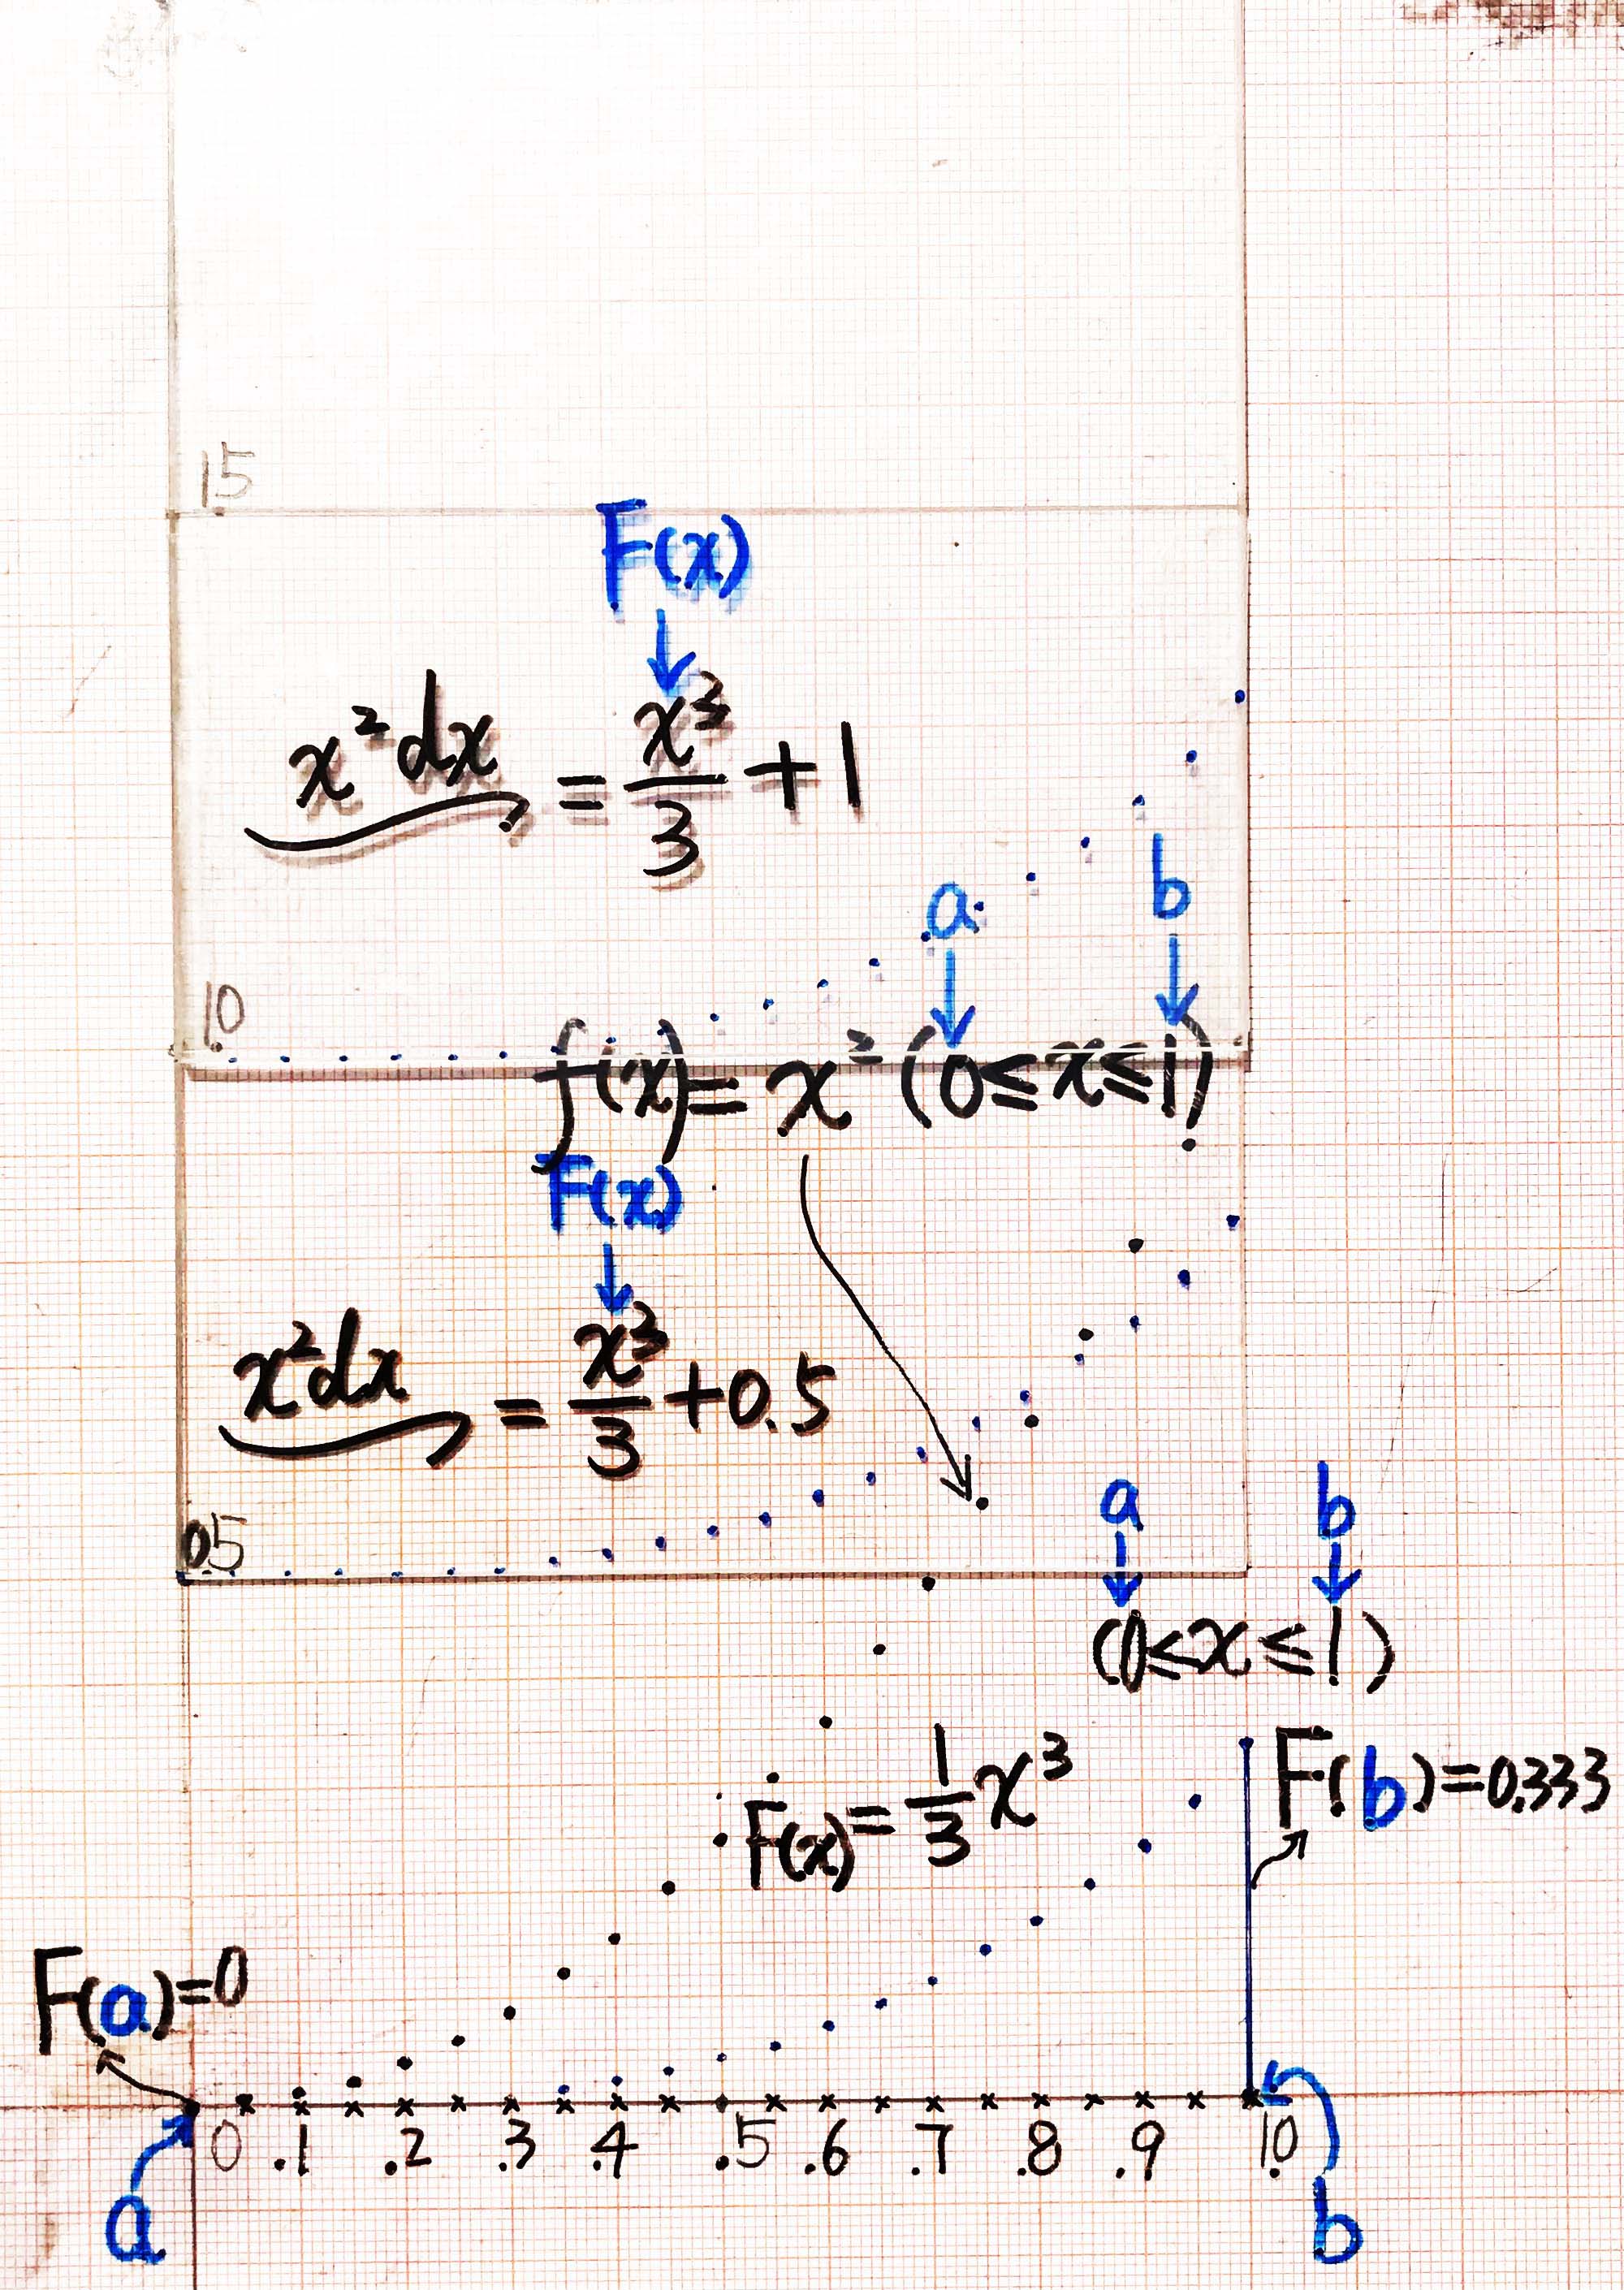 1.5
F(x)
↓
x² dx = x³/3 + 1
a b
↓ ↓
1.0
f(x) = x² (0 ≤ x ≤ 1)
F(x)
↓
x² dx = x³/3 + 0.5
0.5
a b
↓ ↓
(0 ≤ x ≤ 1)
F(x) = 1/3 x³
F(b) = 0.333
F(a) = 0
0 .1 .2 .3 .4 .5 .6 .7 .8 .9 1.0
a b